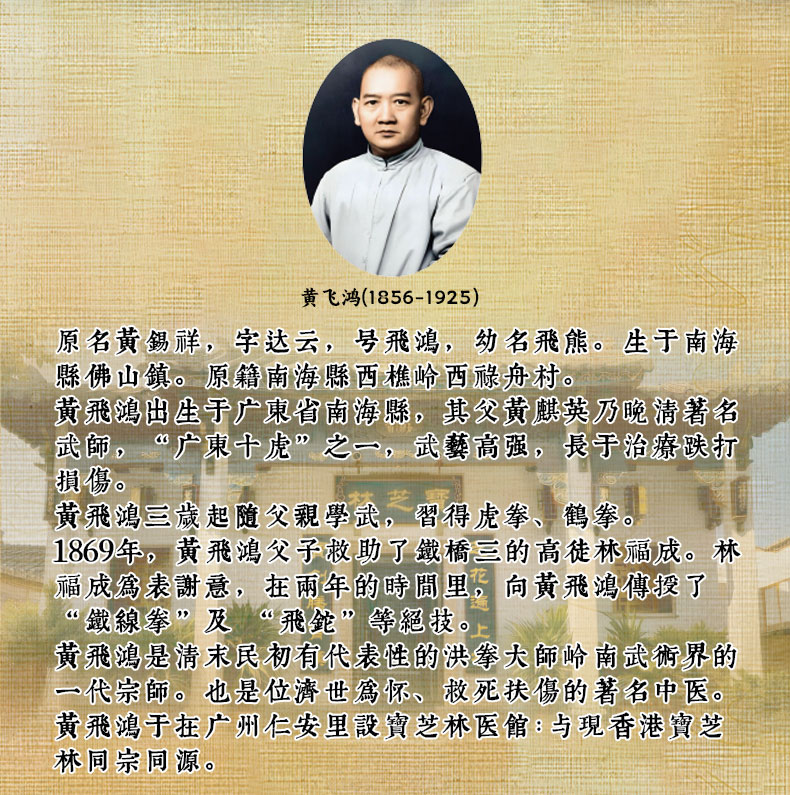 黄飞鸿(1856-1925)
原名黃錫祥，字达云，号飛鴻，幼名飛熊。生于南海
縣佛山鎮。原籍南海縣西樵岭西祿舟村。
黃飛鴻出生于广東省南海縣，其父黃麒英乃晚清著名
武師，“广東十虎”之一，武藝高强，長于治療跌打
損傷。
黃飛鴻三歲起隨父親學武，習得虎拳、鶴拳。
1869年，黃飛鴻父子救助了鐵橋三的高徒林福成。林
福成爲表謝意，在兩年的時間里，向黃飛鴻傳授了
“鐵線拳”及 “飛鉈”等絕技。
黃飛鴻是清末民初有代表性的洪拳大師岭南武術界的
一代宗師。也是位濟世爲怀、救死扶傷的著名中医。
黃飛鴻于在广州仁安里設寶芝林医館:与現香港寶芝
林同宗同源。
林芝寶
花通上